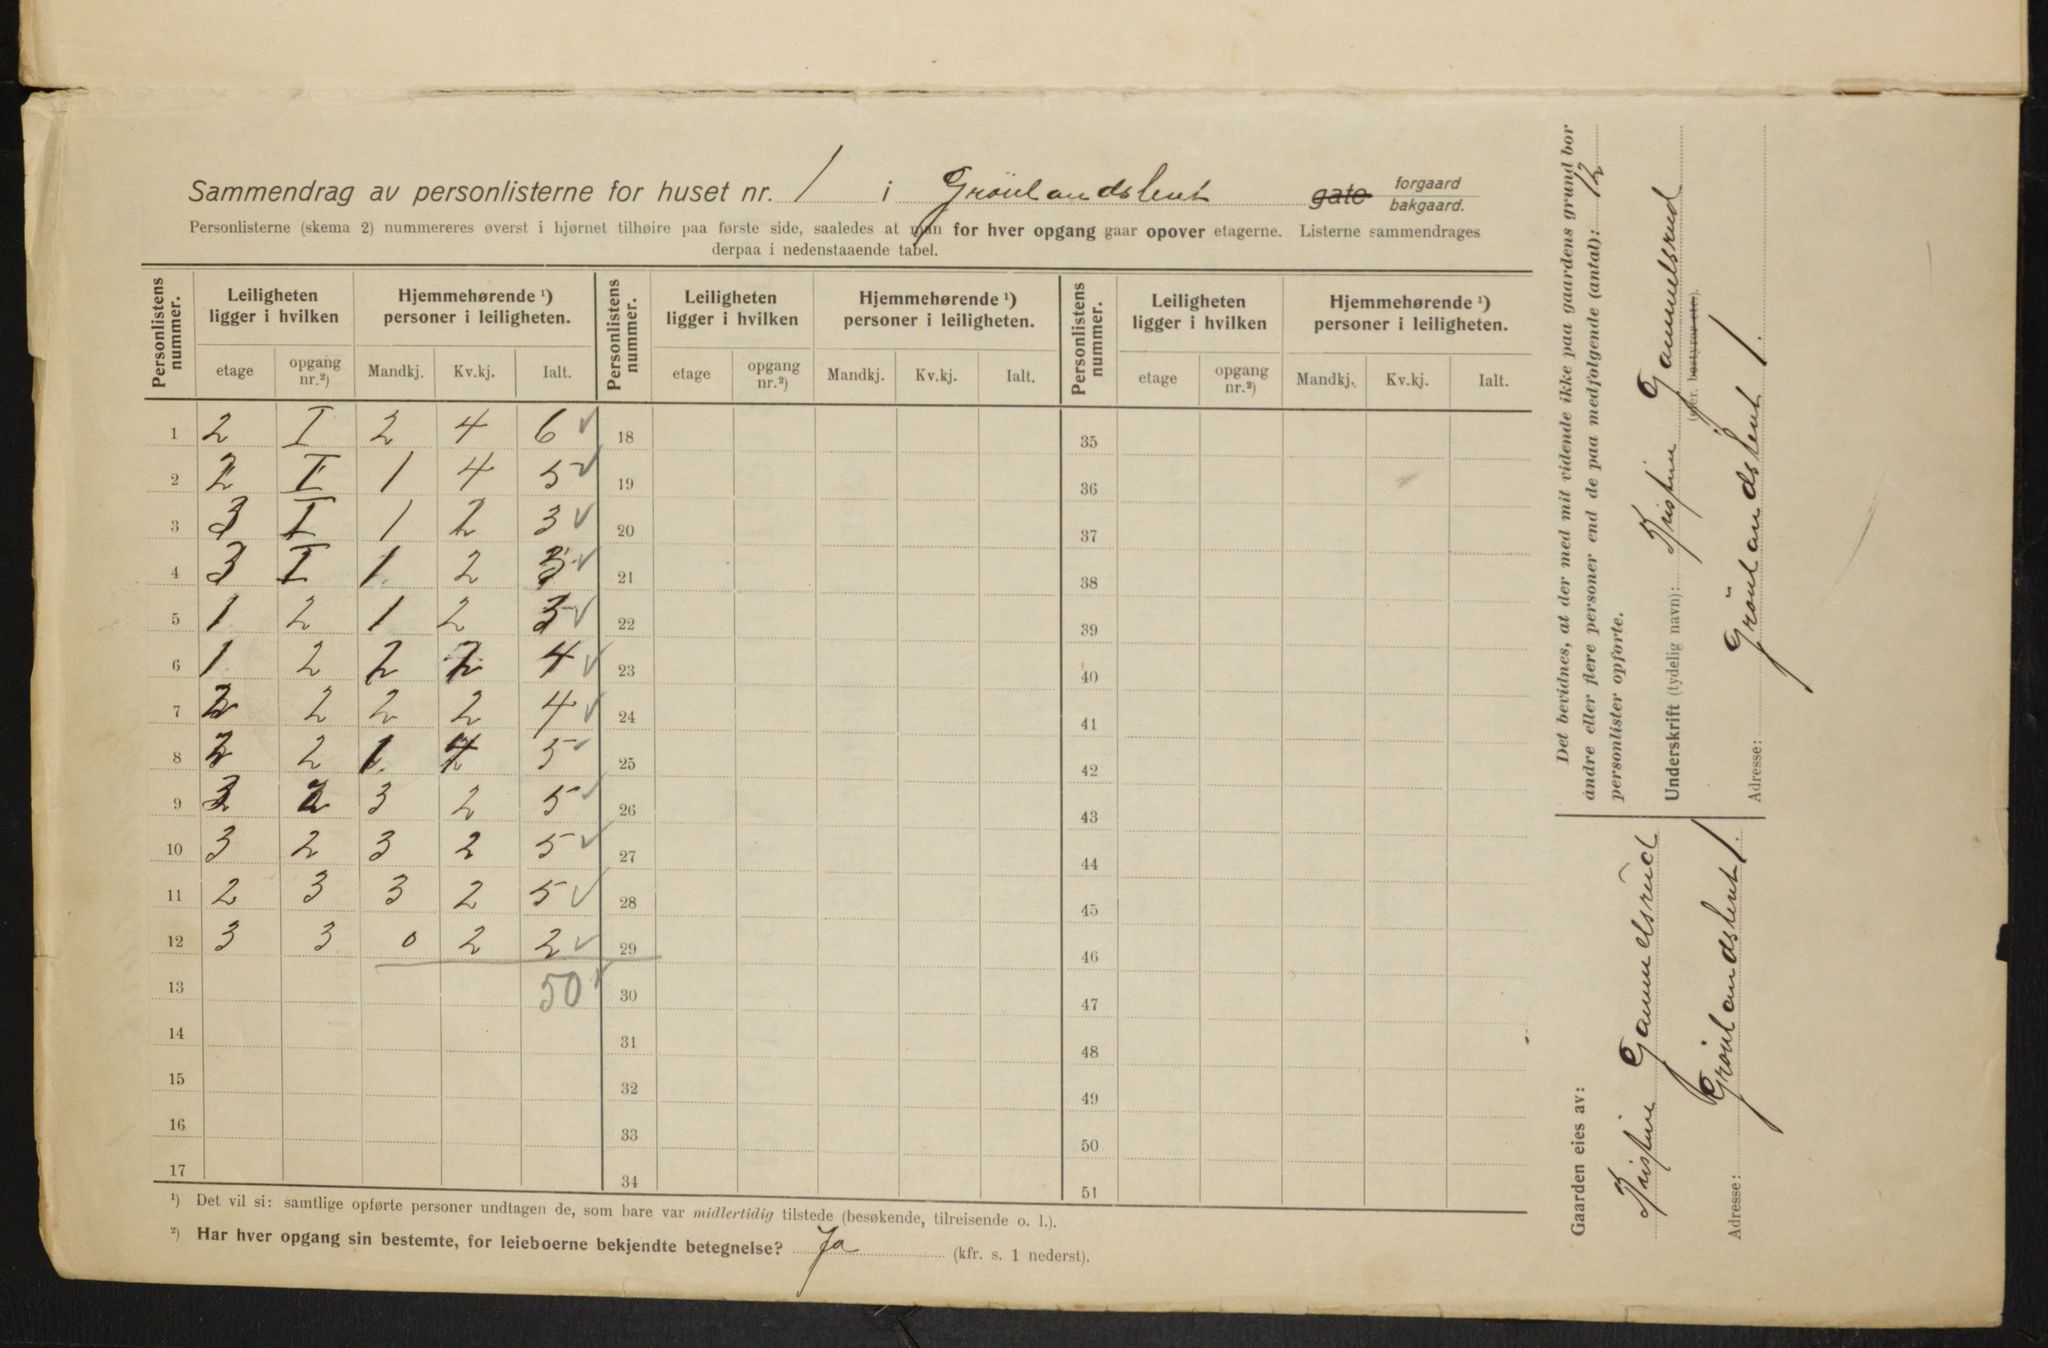 Sammendrag av personlisterne for huset nr. 1 i Grönlandsleret gate forgaard bakgaard.
Personlisterne (skema 2) nummereres øverst i hjørnet tilhøire paa første side, saaledes at man for hver opgang gaar opover etagerne. Listerne sammendrages
derpaa i nedenstaaende tabel.
Personlistens nummer. Leiligheten ligger i hvilken Hjemmehørende ¹) personer i leiligheten. Personlistens nummer. Leiligheten ligger i hvilken Hjemmehørende ¹) personer i leiligheten. Personlistens nummer. Leiligheten ligger i hvilken Hjemmehørende ¹) personer i leiligheten.
etage opgang nr.²) Mandkj. Kv.kj. Ialt. etage opgang nr.²) Mandkj. Kv.kj. Ialt. etage opgang nr.²) Mandkj. Kv.kj. Ialt.
1 2 I 2 4 6 ✓ 18 35
2 2 I 1 4 5 ✓ 19 36
3 3 I 1 2 3 ✓ 20 37
4 3 I 1 2 3 ✓ 21 38
5 1 2 1 2 3 ✓ 22 39
6 1 2 2 2 4 ✓ 23 40
7 2 2 2 2 4 ✓ 24 41
8 2 2 1 4 5 ✓ 25 42
9 3 2 3 2 5 ✓ 26 43
10 3 2 3 2 5 ✓ 27 44
11 2 3 3 2 5 ✓ 28 45
12 3 3 0 2 2 ✓ 29 46
13 50 ✓ 30 47
14 31 48
15 32 49
16 33 50
17 34 51
¹) Det vil si: samtlige opførte personer undtagen de, som bare var midlertidig tilstede (besøkende, tilreisende o. l.).
²) Har hver opgang sin bestemte, for leieboerne bekjendte betegnelse? Ja (kfr. s. 1 nederst).
Det bevidnes, at der med mit vidende ikke paa gaardens grund bor
andre eller flere personer end de paa medfølgende (antal): 12
personlister opførte.
Underskrift (tydelig navn): Kristine Gammelsrud
(eier, bestyrer etc.)
Adresse: Grönlandsleret 1.
Gaarden eies av:
Kristine Gammelsrud
Adresse: Grönlandsleret 1.